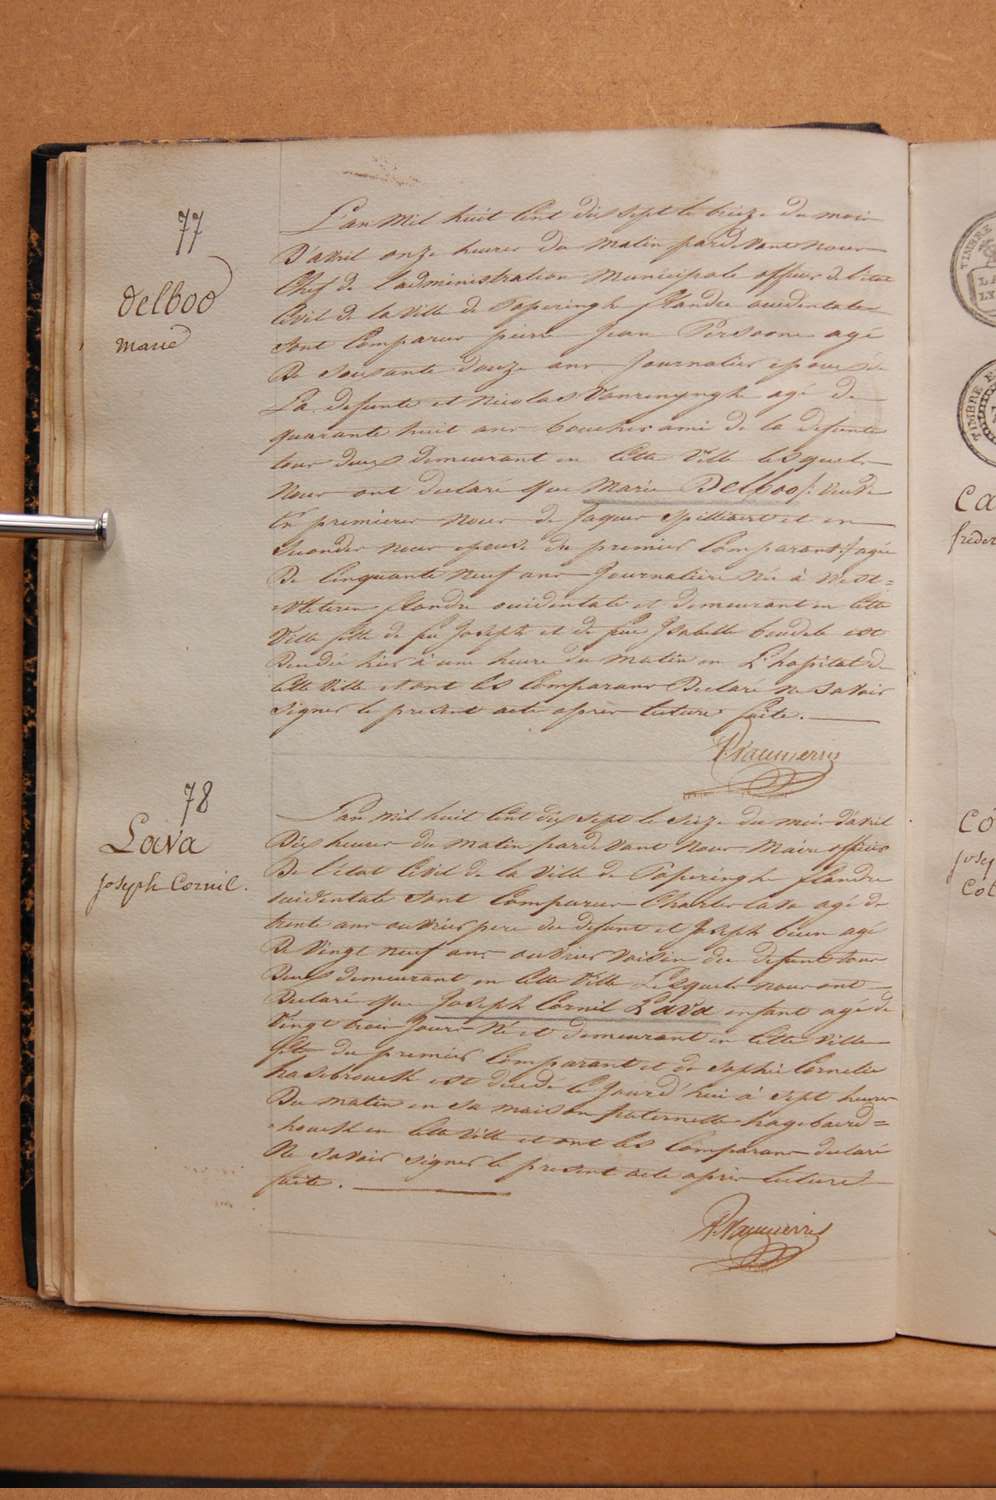 77
Delboo
Marie
L'an Mil huit Cent dix sept le treize du mois
D'avril onze heures du matin pardevant nous
Chef de l'administration Municipale officier de l'état
Civil de la Ville de Poperinghe flandre occidentale
sont Comparus pierre Jean Persoone agé
De soixante douze ans Journalier epoux de
La defunte et Nicolas Vanrenynghe agé de
quarante huit ans boucher ami de la defunte
tous deux demeurant en Cette Ville lesquels
Nous ont declaré que Marie Delboo /: veuve
En premieres Noces de Jaques Spilliaert et en
secondes noces epouse du premier Comparant :/ agée
De Cinquante Neuf ans Journalière Née à West=
=vleteren flandre occidentale et demeurant en Cette
Ville fille de feu Joseph et de feue Isabelle est
Decedée hier à une heure du matin en L'hopital de
Cette Ville et ont les Comparans Declaré ne savoir
signer le present acte après lecture faite.
78
Lava
Joseph Cornil.
L'an Mil huit Cent dix sept le seize du mois d'avril
Dix heures du matin pardevant Nous Maire officier
De l'état Civil de la Ville de Poperinghe flandre
occidentale sont Comparus Charles Lava agé de
trente ans ouvrier pere du defunt et Joseph agé
De Vingt neuf ans ouvrier Voisin du defunt tous
Deux demeurant en Cette Ville Lesquels nous ont
Declaré que Joseph Cornil Lava enfant agé de
Vingt trois Jours Né et demeurant en Cette Ville
fils du premier Comparant et de Sophie Cornelie
hasebrouck est decedé le Jourd'hui à sept heures
Du matin en sa maison paternelle
en Cette Ville et ont les Comparans declaré
Ne savoir signer le present acte après lecture
faite.
TIMBRE
TIMBRE
Ca
frede
Co
Jose